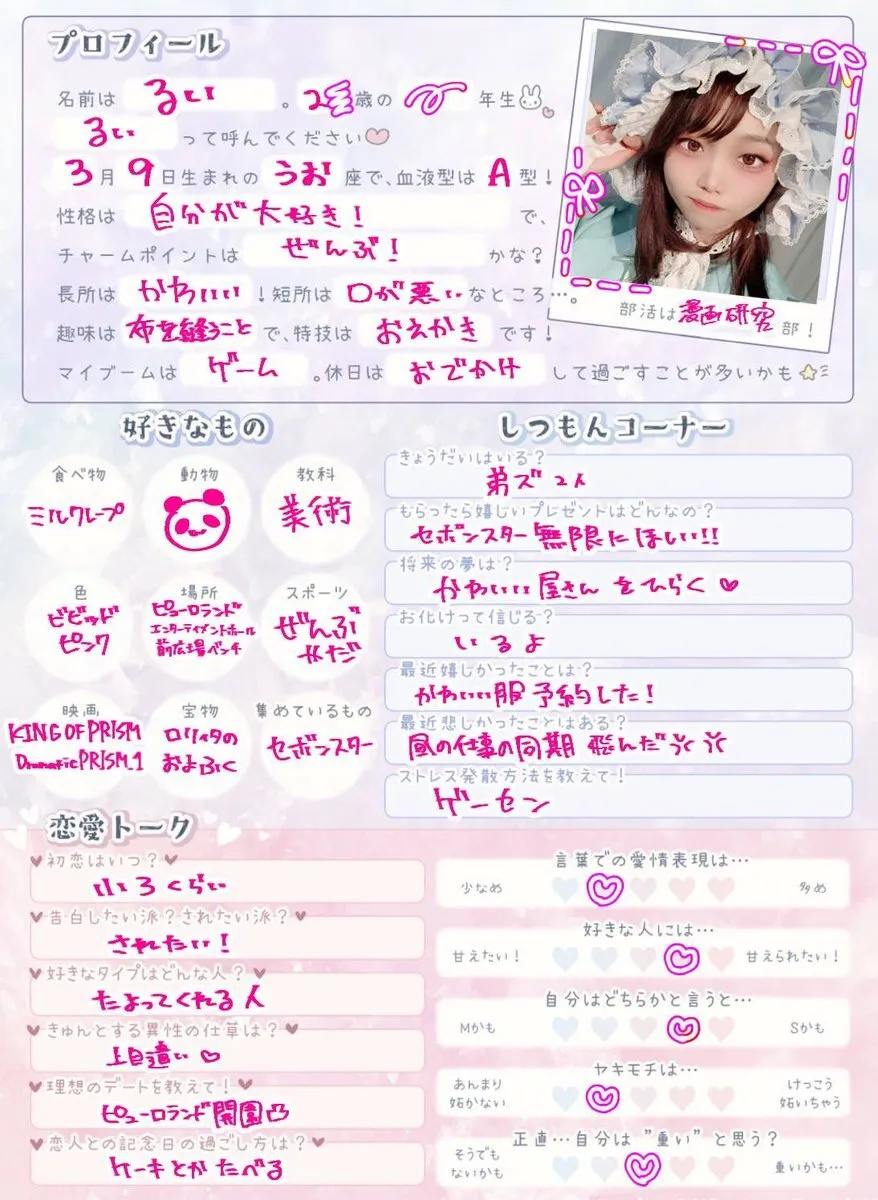 プロフィール
名前は るい 。2 歳の 年生
るい って呼んでください
3月9日生まれの うお 座で、血液型は A 型！
性格は 自分が大好き！ で、
チャームポイントは ぜんぶ！ かな？
長所は かわいい ！短所は 口が悪い なところ…。
趣味は 布を縫うこと で、特技は おえかき です！
マイブームは ゲーム 。休日は おでかけ して過ごすことが多いかも
部活は 漫画研究 部！
好きなもの
食べ物 動物 教科
ミルクレープ 美術
色 場所 スポーツ
ビビッド
ピンク
ピューロランド
エンターテイメントホール
前広場ベンチ
ぜんぶ
やだ
映画 宝物 集めているもの
KING OF PRISM
Dramatic PRISM.1
ロリィタの
およふく
セボンスター
しつもんコーナー
きょうだいはいる？
弟ズ 2人
もらったら嬉しいプレゼントはどんなの？
セボンスター無限にほしい!!
将来の夢は？
かわいい屋さんをひらく♡
お化けって信じる？
いるよ
最近嬉しかったことは？
かわいい服予約した！
最近悲しかったことはある？
昼の仕事の同期 飛んだ
ストレス発散方法を教えて！
ゲーセン
恋愛トーク
♥初恋はいつ？♥
小3くらい
♥告白したい派？されたい派？♥
されたい！
♥好きなタイプはどんな人？♥
たよってくれる人
♥きゅんとする異性の仕草は？♥
上目遣い♡
♥理想のデートを教えて！♥
ピューロランド開園凸
♥恋人との記念日の過ごし方は？♥
ケーキとかたべる
言葉での愛情表現は…
少なめ 多め
好きな人には…
甘えたい！ 甘えられたい！
自分はどちらかと言うと…
Mかも Sかも
ヤキモチは…
あんまり
妬かない
けっこう
妬いちゃう
正直…自分は”重い”と思う？
そうでも
ないかも
重いかも…